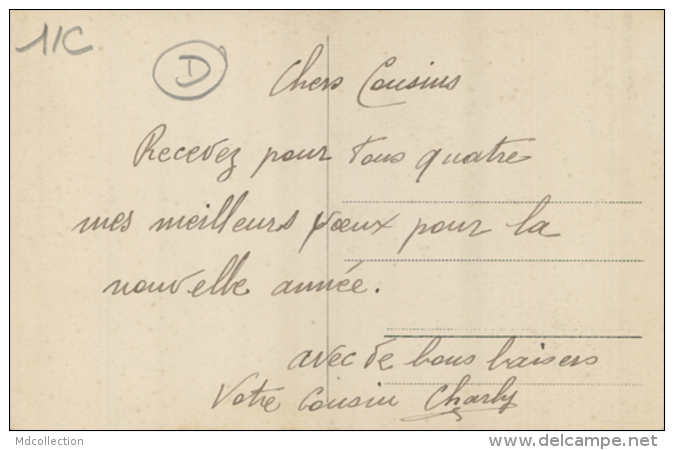 11C
D
Chers Cousins
Recevez pour tous quatre
mes meilleurs vœux pour la
nouvelle année.
avec de bons baisers
Votre cousin Charly
Mdcollection
www.delcampe.net